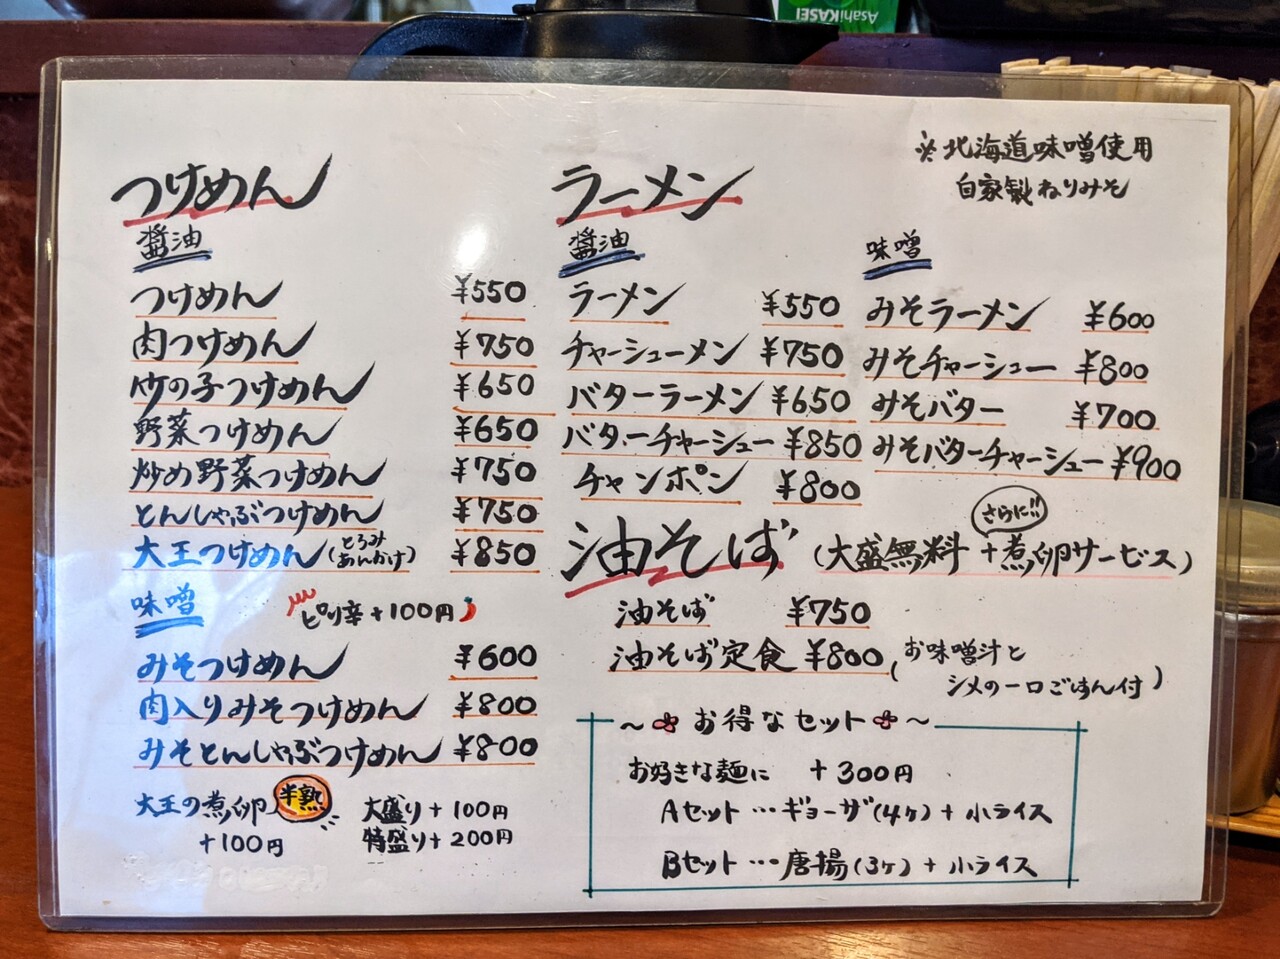 AsahiKASEI
※北海道味噌使用
自家製ねりみそ
つけめん
醤油
つけめん ¥550
肉つけめん ¥750
竹の子つけめん ¥650
野菜つけめん ¥650
炒め野菜つけめん ¥750
とんしゃぶつけめん ¥750
大王つけめん(とろみあんかけ) ¥850
味噌 ピリ辛+100円
みそつけめん ¥600
肉入りみそつけめん ¥800
みそとんしゃぶつけめん ¥800
大王の煮卵 半熟
+100円
大盛り+100円
特盛り+200円
ラーメン
醤油
ラーメン ¥550
チャーシューメン ¥750
バターラーメン ¥650
バターチャーシュー ¥850
チャンポン ¥800
味噌
みそラーメン ¥600
みそチャーシュー ¥800
みそバター ¥700
みそバターチャーシュー ¥900
油そば (大盛無料 さらに!! +煮卵サービス)
油そば ¥750
油そば定食 ¥800 (お味噌汁と
シメの一口ごはん付)
~お得なセット~
お好きな麺に +300円
Aセット…ギョーザ(4ヶ)+小ライス
Bセット…唐揚(3ヶ)+小ライス